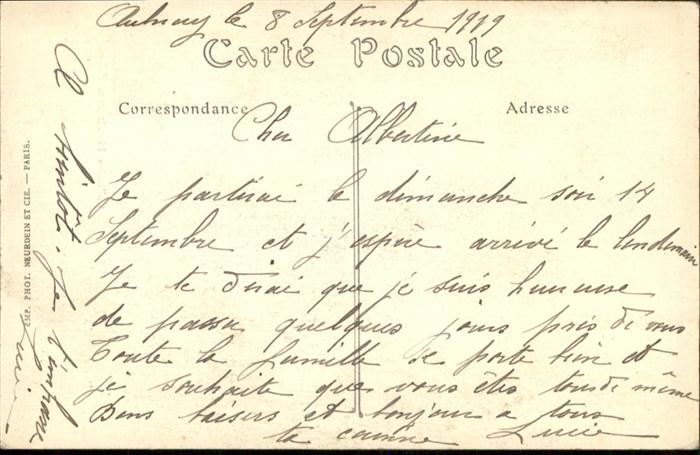 Aulnay le 8 Septembre 1919
Carte Postale
Correspondance
Adresse
Cher Albertine
Je partirai le dimanche soir 14
Septembre et j'espère arrivé le lendemain
Je te dirai que je suis heureuse
de passer quelques jours près de vous
Toute la famille se porte bien et
je souhaite que vous êtes tous de même
Bons baisers et bonjour a tous
ta cousine Lucie
A bientôt. Je t'embrasse
Lucie
IMP. PHOT. NEURDEIN ET CIE. — PARIS.